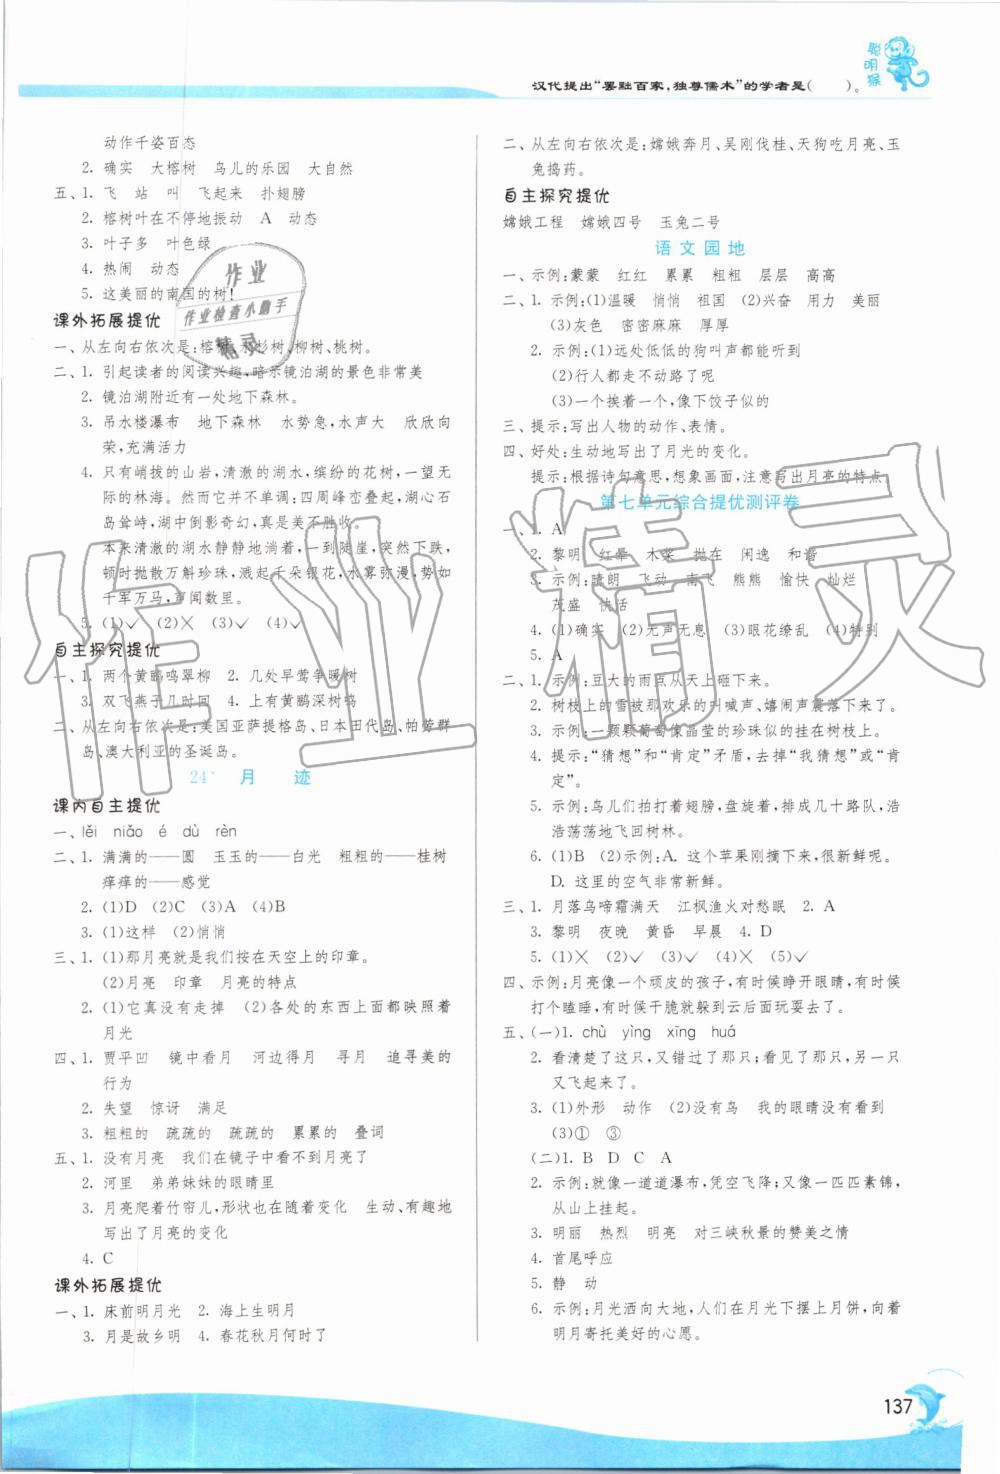 聪明猴
汉代提出“罢黜百家，独尊儒术”的学者是(　　)。
动作千姿百态
2. 确实　大榕树　鸟儿的乐园　大自然
五、1. 飞　站　叫　飞起来　扑翅膀
2. 榕树叶在不停地振动　A　动态
3. 叶子多　叶色绿
4. 热闹　动态
5. 这美丽的南国的树!
课外拓展提优
一、从左向右依次是:榕树、水杉树、柳树、桃树。
二、1. 引起读者的阅读兴趣,暗示镜泊湖的景色非常美
2. 镜泊湖附近有一处地下森林。
3. 吊水楼瀑布　地下森林　水势急,水声大　欣欣向
荣,充满活力
4. 只有峭拔的山岩,清澈的湖水,缤纷的花树,一望无
际的林海。然而它并不单调:四周峰峦叠起,湖心石
岛耸峙,湖中倒影奇幻,真是美不胜收。
本来清澈的湖水静静地淌着,一到陡崖,突然下跌,
顿时抛散万斛珍珠,溅起千朵银花,水雾弥漫,势如
千军万马,声闻数里。
5. (1)√　(2)×　(3)√　(4)√
自主探究提优
一、1. 两个黄鹂鸣翠柳　2. 几处早莺争暖树
3. 双飞燕子几时回　4. 上有黄鹂深树鸣
二、从左向右依次是:美国亚萨提格岛、日本田代岛、帕劳群
岛、澳大利亚的圣诞岛。
24*　月　迹
课内自主提优
一、lěi　niǎo　é　dù　rèn
二、1. 满满的——圆　玉玉的——白光　粗粗的——桂树
痒痒的——感觉
2. (1)D　(2)C　(3)A　(4)B
3. (1)这样　(2)悄悄
三、1. (1)那月亮就是我们按在天空上的印章。
(2)月亮　印章　月亮的特点
2. (1)它真没有走掉　(2)各处的东西上面都映照着
月光
四、1. 贾平凹　镜中看月　河边得月　寻月　追寻美的
行为
2. 失望　惊讶　满足
3. 粗粗的　疏疏的　疏疏的　累累的　叠词
五、1. 没有月亮　我们在镜子中看不到月亮了
2. 河里　弟弟妹妹的眼睛里
3. 月亮爬着竹帘儿,形状也在随着变化　生动、有趣地
写出了月亮的变化
4. C
课外拓展提优
一、1. 床前明月光　2. 海上生明月
3. 月是故乡明　4. 春花秋月何时了
二、从左向右依次是:嫦娥奔月、吴刚伐桂、天狗吃月亮、玉
兔捣药。
自主探究提优
嫦娥工程　嫦娥四号　玉兔二号
语文园地
一、示例:蒙蒙　红红　累累　粗粗　层层　高高
二、1. 示例:(1)温暖　悄悄　祖国　(2)兴奋　用力　美丽
(3)灰色　密密麻麻　厚厚
2. 示例:(1)远处低低的狗叫声都能听到
(2)行人都走不动路了呢
(3)一个挨着一个,像下饺子似的
三、提示:写出人物的动作、表情。
四、好处:生动地写出了月光的变化。
提示:根据诗句意思,想象画面,注意写出月亮的特点。
第七单元综合提优测评卷
一、1. A
2. 黎明　红晕　木桨　抛在　闲逸　和谐
3. 示例:晴朗　飞动　南飞　熊熊　愉快　灿烂
茂盛　快活
4. (1)确实　(2)无声无息　(3)眼花缭乱　(4)特别
5. A
二、1. 示例:豆大的雨点从天上砸下来。
2. 树枝上的雪被那欢乐的叫喊声、嬉闹声震落下来了。
3. 示例:一颗颗葡萄像晶莹的珍珠似的挂在树枝上。
4. 提示:“猜想”和“肯定”可改成“我猜想”“或者肯
定”。
5. 示例:鸟儿们拍打着翅膀,盘旋着,排成几十路队,浩
浩荡荡地飞回树林。
6. (1)B　(2)示例:A. 这个苹果刚摘下来,很新鲜呢。
D. 这里的空气非常新鲜。
三、1. 月落乌啼霜满天　江枫渔火对愁眠　2. A
3. 黎明　夜晚　黄昏　早晨　4. D
5. (1)×　(2)√　(3)×　(4)×　(5)√
四、示例:月亮像一个顽皮的孩子,有时候睁开眼睛,有时候
打个瞌睡,有时候干脆就躲到云后面玩耍去了。
五、(一)1. chù　yìng　xīng　huá
2. 看清楚了这只,又错过了那只;看见了那只,另一只
又飞起来了。
3. (1)外形　动作　(2)没有鸟　我的眼睛没有看到
(3)①　③
(二)1. B　D　C　A
2. 示例:就像一道道瀑布,凭空飞降;又像一匹匹素锦,
从山上挂起。
3. 明丽　热烈　明亮　对三峡秋景的赞美之情
4. 首尾呼应
5. 静　动
6. 示例:月光洒向大地,人们在月光下摆上月饼,向着
明月寄托美好的心愿。
137
作业
作业检查小助手
精灵
作业精灵